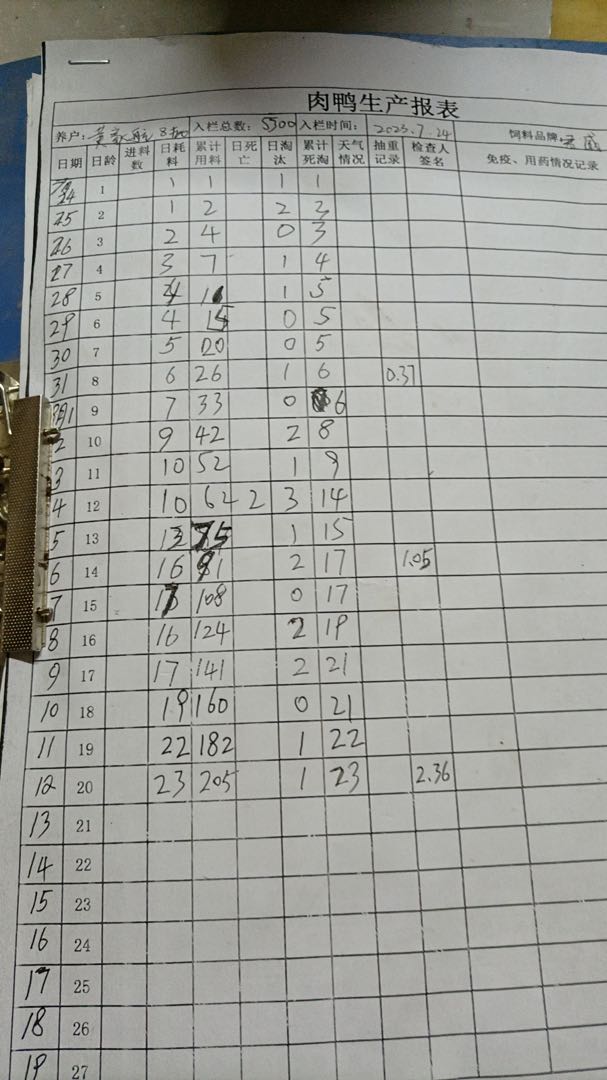 肉鸭生产报表
养户: 黄 航 8 入栏总数: 5500 入栏时间: 2023.7.24 饲料品牌:
日期 日龄 进料数 日耗料 累计用料 日死亡 日淘汰 累计死淘 天气情况 抽重记录 检查人签名 免疫、用药情况记录
24 1 1 1 1
25 2 1 2 2 3
26 3 2 4 0 3
27 4 3 7 1 4
28 5 4 1 5
29 6 4 15 0 5
30 7 5 20 0 5
31 8 6 26 1 6 0.37
8月1 9 7 33 0 6
2 10 9 42 2 8
3 11 10 52 1 9
4 12 10 62 2 3 14
5 13 13 75 1 15
6 14 16 91 2 17 1.05
7 15 17 108 0 17
8 16 16 124 2 19
9 17 17 141 2 21
10 18 19 160 0 21
11 19 22 182 1 22
12 20 23 205 1 23 2.36
13 21
14 22
15 23
16 24
17 25
18 26
19 27